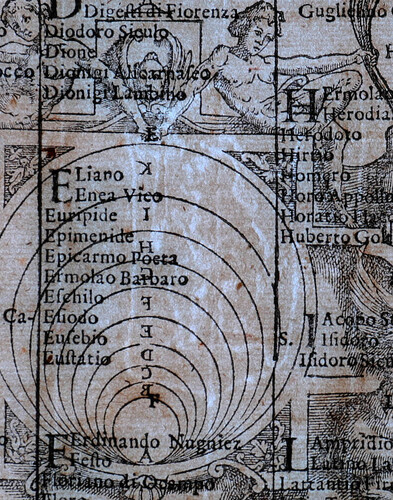 Digesti di Fiorenza
Diodoro Siculo
Dione
Dionigi Alicarnaseo
Dionigi Lambino
Eliano
Enea Vico
Euripide
Epimenide
Epicarmo Poeta
Ermolao Barbaro
Eschilo
Esiodo
Eusebio
Eustatio
Ferdinando Nugniez
Festo
Floriano di Ocampo
K
I
H
G
F
E
D
C
B
A
Guglielmo
Ermolao
Herodia
Herodoto
Hirtio
Homero
Horo Appollo
Horatio
Huberto Gol
Ca-
S.
Iacopo
Isidoro
Isidoro
Lampridio
Lutino La
Lattantio Fir